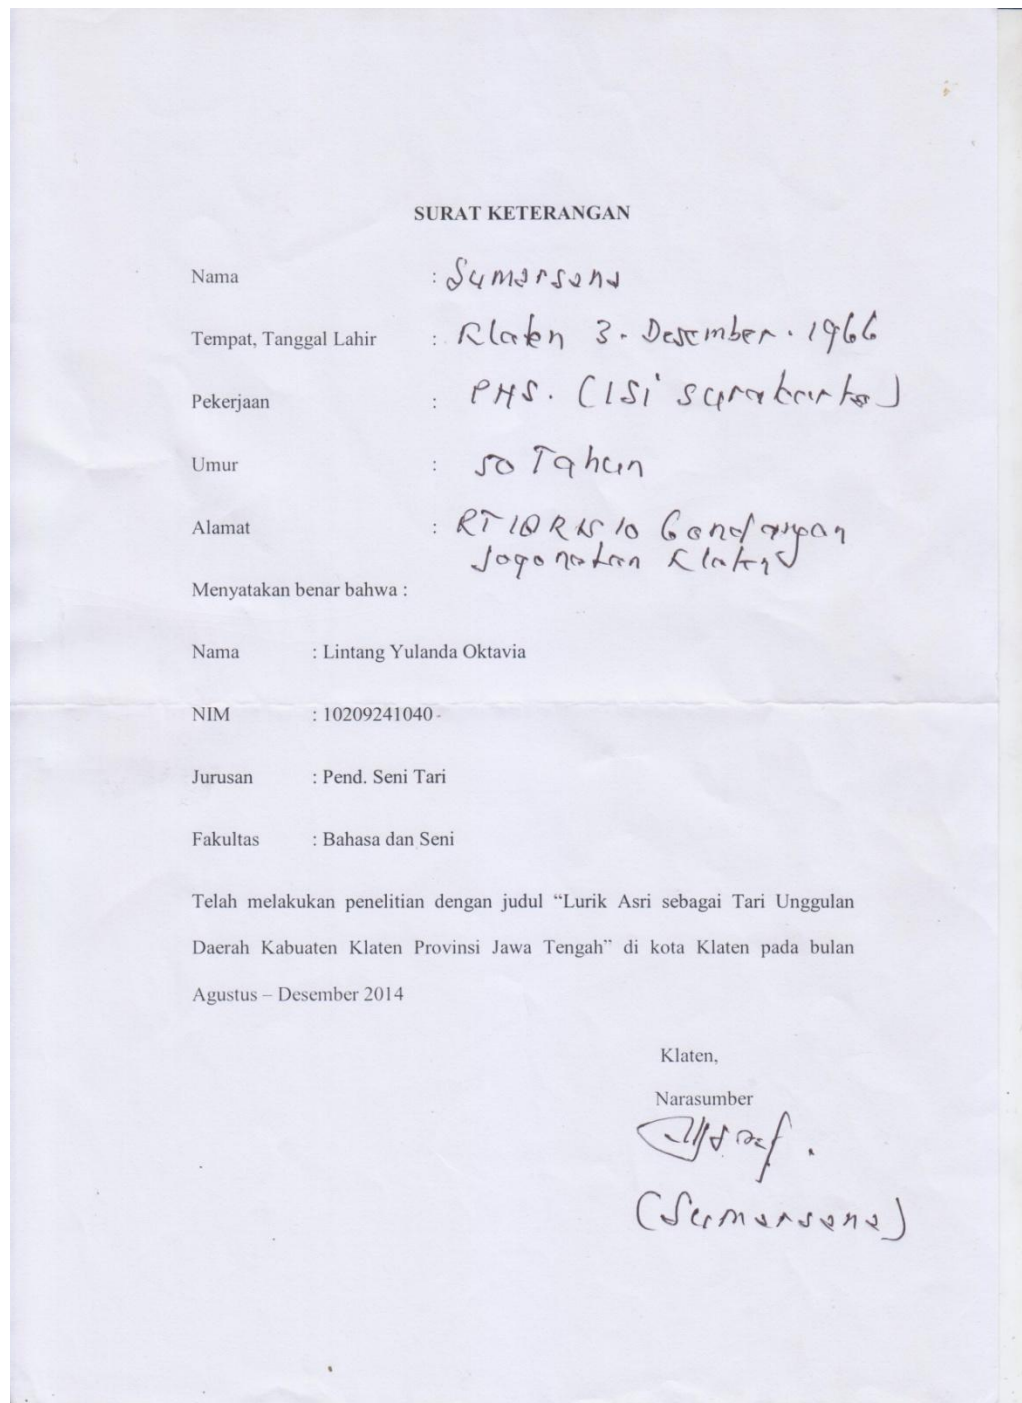 SURAT KETERANGAN
Nama : Sumarsana
Tempat, Tanggal Lahir : Klaten 3. Desember. 1966
Pekerjaan : PNS. (ISI Surakarta)
Umur : 50 Tahun
Alamat : RT 10 RW 10 Gondangan
Jogonalan Klaten
Menyatakan benar bahwa :
Nama : Lintang Yulanda Oktavia
NIM : 10209241040
Jurusan : Pend. Seni Tari
Fakultas : Bahasa dan Seni
Telah melakukan penelitian dengan judul “Lurik Asri sebagai Tari Unggulan
Daerah Kabuaten Klaten Provinsi Jawa Tengah” di kota Klaten pada bulan
Agustus – Desember 2014
Klaten,
Narasumber
(Sumarsana)